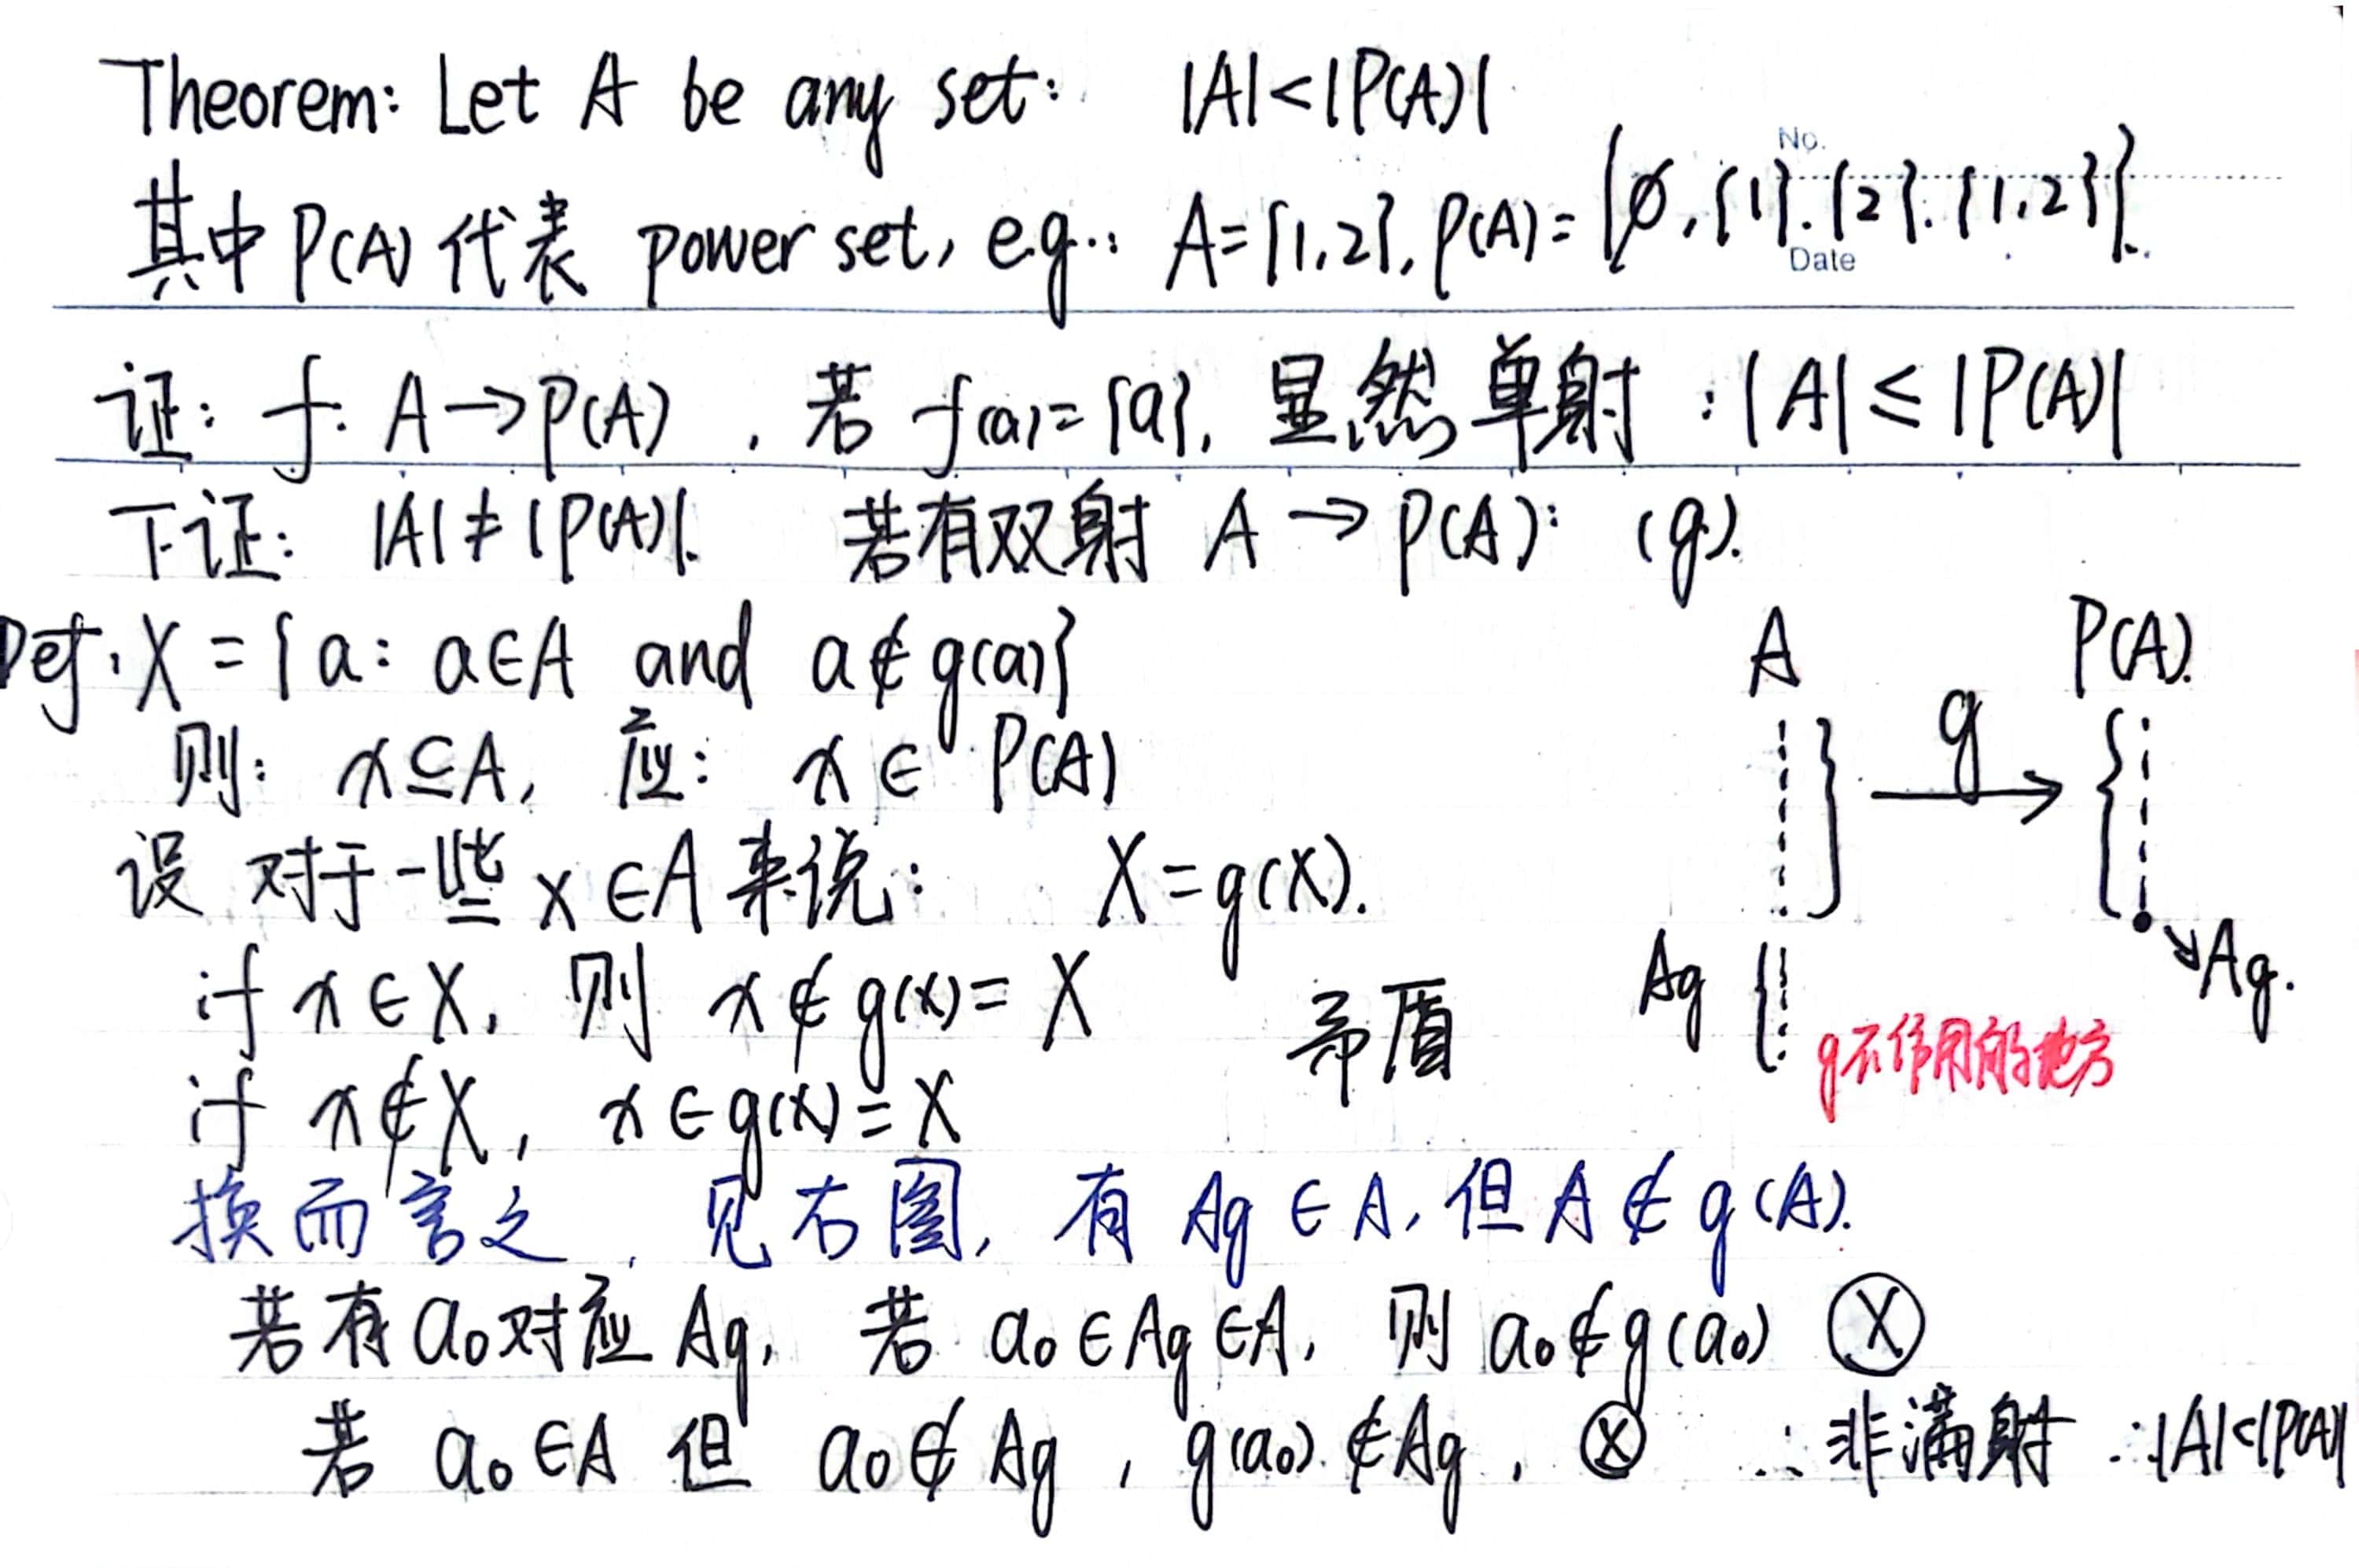 Theorem: Let A be any set: |A|<|P(A)|
No.
其中 P(A) 代表 power set, e.g.: A={1,2}, P(A)={∅,{1}.{2}.{1,2}}.
Date
证: f: A→P(A) , 若 f(a)={a}, 显然 单射 : |A| ≤ |P(A)|
下证: |A|≠|P(A)|. 若有双射 A → P(A): (g).
Def: X = {a: a∈A and a∉g(a)}
则: x⊆A, 应: x∈ P(A)
设 对于一些 x∈A 来说: X=g(x).
if x∈X, 则 x∉g(x)= X
矛盾
if x∉X, x∈g(x)=X
A P(A).
g
Ag
Ag.
g不作用的地方
换而言之, 见右图, 有 Ag∈A, 但 A∉g(A).
若有a₀对应Ag, 若 a₀∈Ag∈A, 则 a₀∉g(a₀) Ⓧ
若 a₀∈A 但 a₀∉Ag, g(a₀)∉Ag, Ⓧ ∴非满射 ∴|A|<|P(A)|